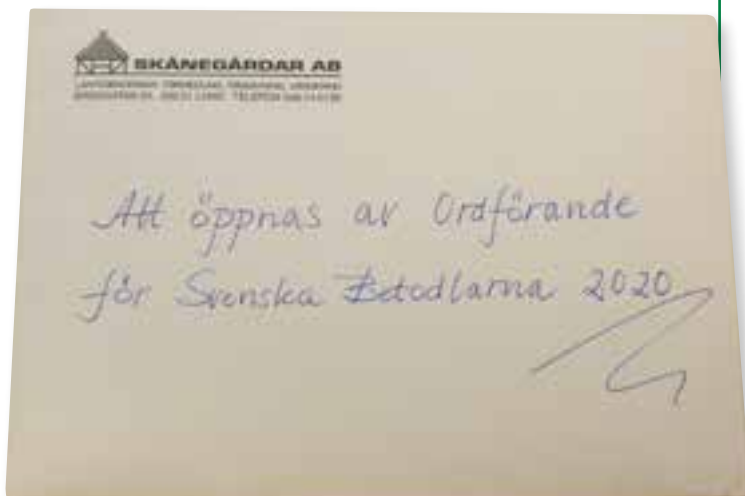 SKÅNEGÅRDAR AB
Att öppnas av Ordförande
för Svenska Betodlarna 2020